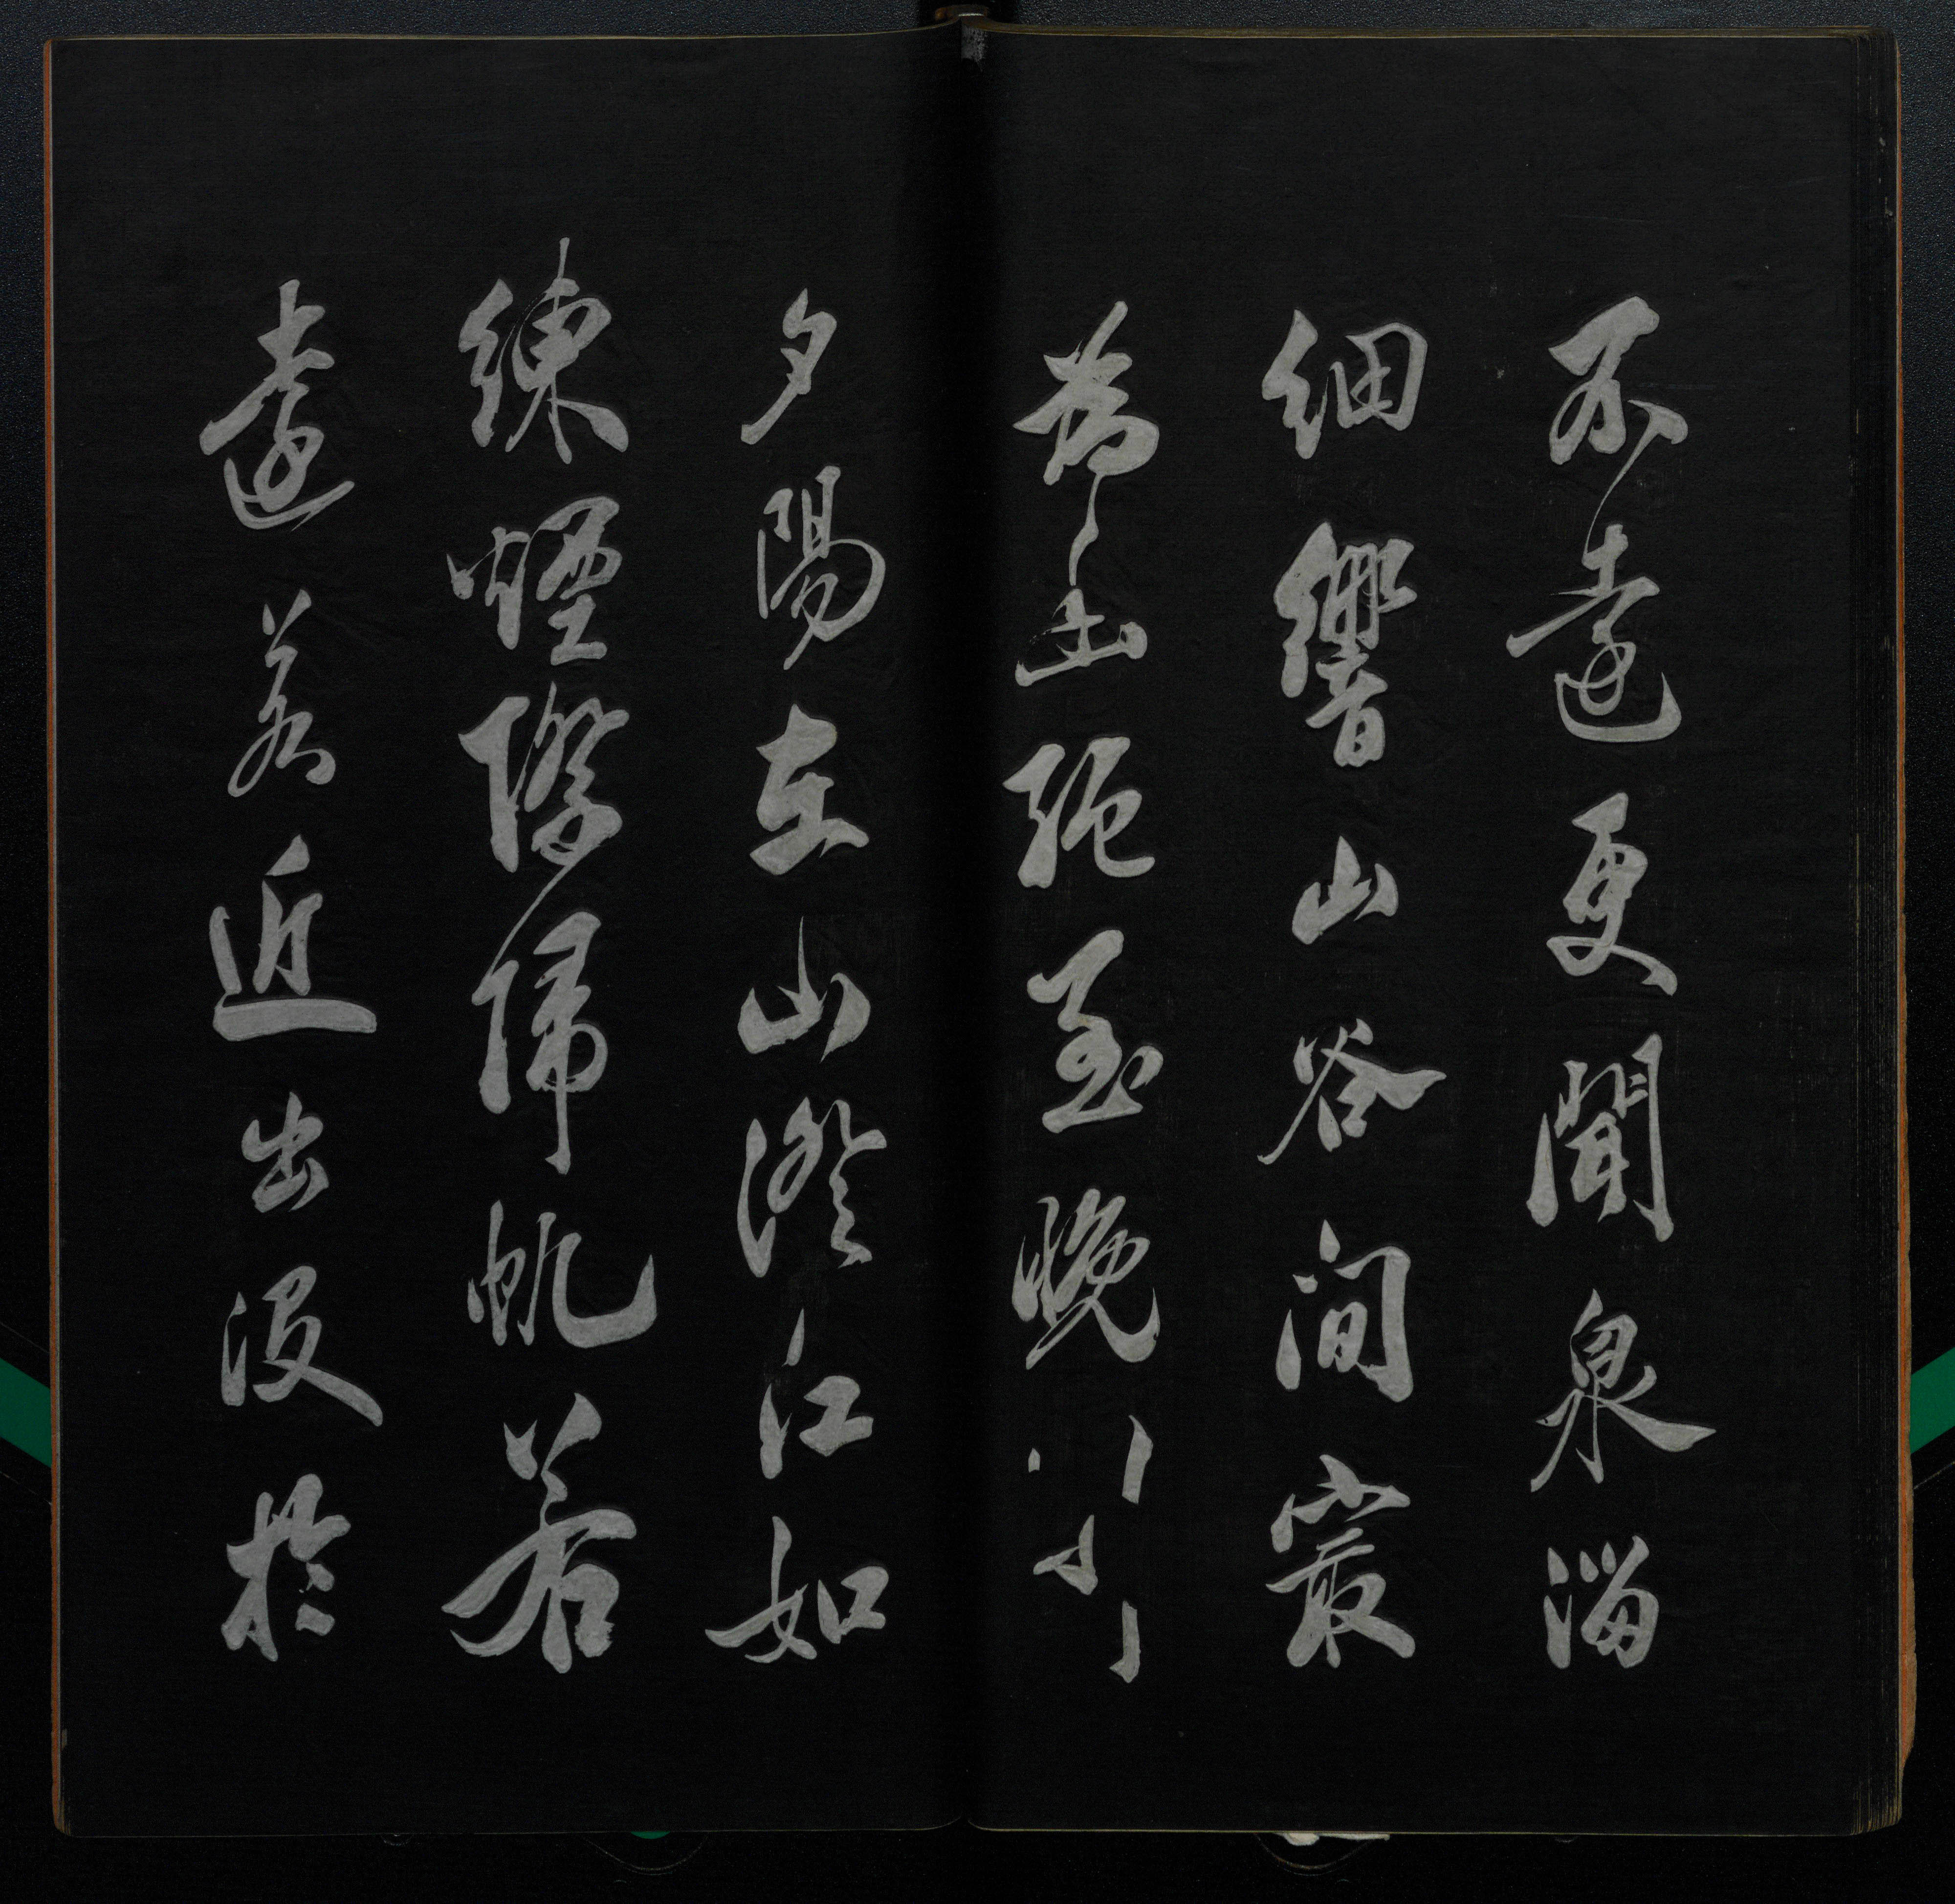 不遠更聞泉溜
細響山谷間最
為幽絕至晚
夕陽在山澄江如
練煙際歸帆若
遠若近出沒於